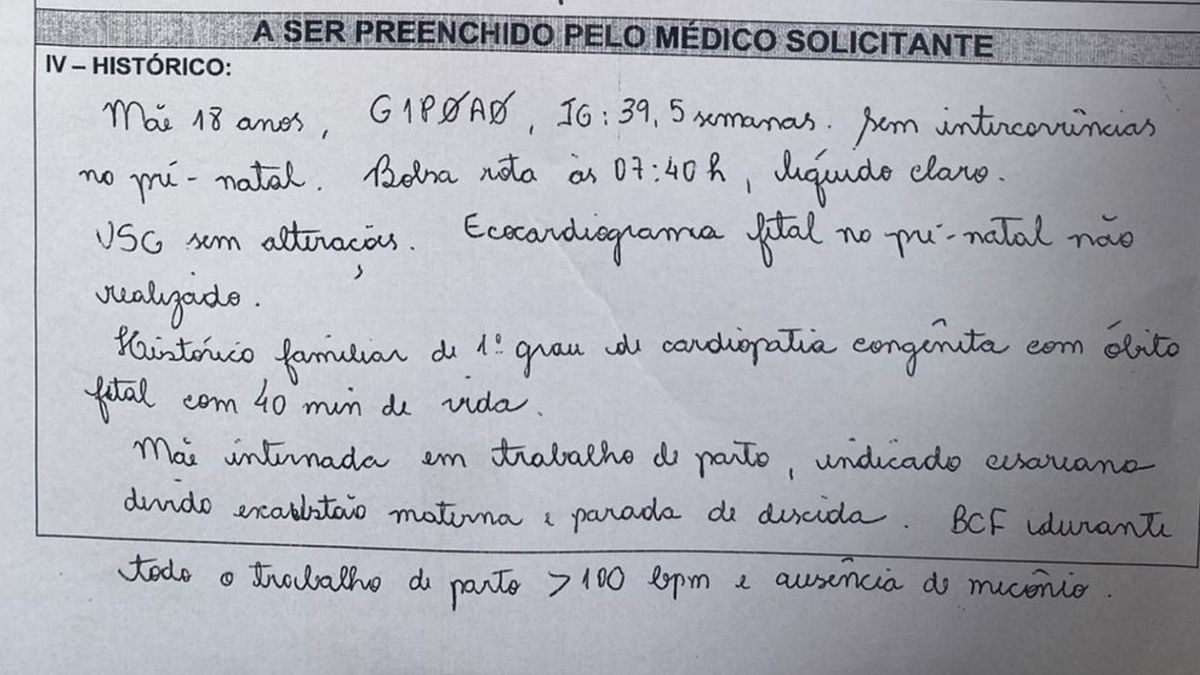 A SER PREENCHIDO PELO MÉDICO SOLICITANTE
IV – HISTÓRICO:
Mãe 18 anos, G1PØAØ, IG: 39,5 semanas. Sem intercorrências
no pré-natal. Bolsa rota às 07:40 h, líquido claro.
USG sem alterações. Ecocardiograma fetal no pré-natal não
realizado.
Histórico familiar de 1º grau de cardiopatia congênita com óbito
fetal com 40 min de vida.
Mãe internada em trabalho de parto, indicado cesariana
devido exaustão materna e parada de descida. BCF durante
todo o trabalho de parto >100 bpm e ausência de mecônio.